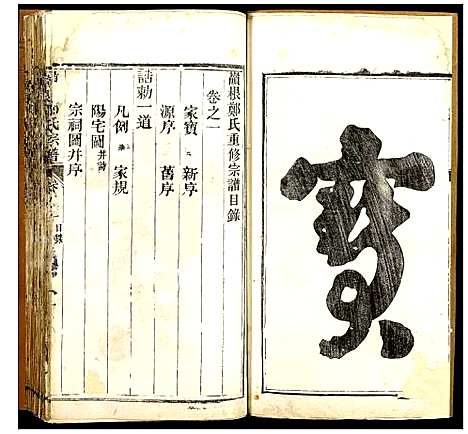 寶
巖根鄭氏重修宗譜目錄
卷之一
家寶 新序
源序 舊序
誥勅一道
凡例 家規
陽宅圖并詩
宗祠圖并序
氏宗譜
目錄